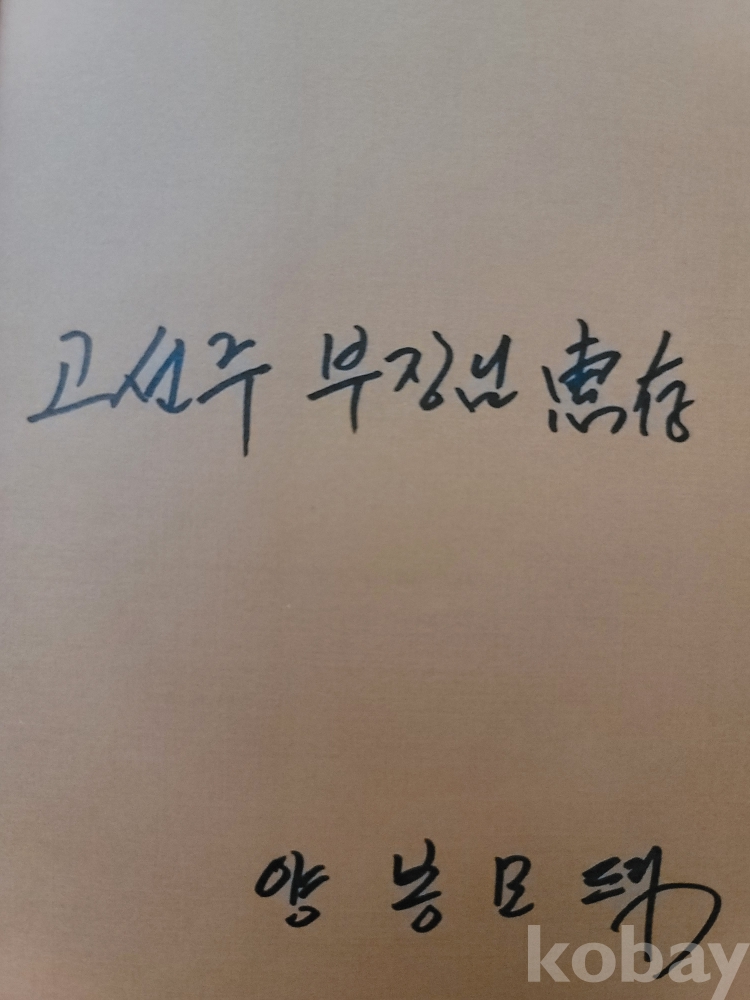 고선주 부장님 惠存
양봉모 드림
kobay